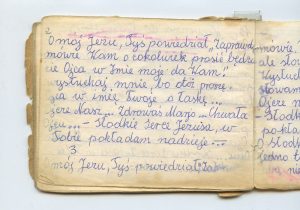 2
O mój Jezu, Tyś powiedział „Zaprawdę
mówię Wam o cokolwiek prosić będzie
cie Ojca w Imię moje da Wam."
wysłuchaj mnie, bo oto proszę
Cię w imię Twoje o łaskę...
Ojcze Nasz... Zdrowaś Mario... Chwała
Ojcu... - Słodkie Serce Jezusa, w
Tobie pokładam nadzieję...
3
mój Jezu, Tyś powiedział „Za
mówię
ale sło
Wysłu
Słowe
Ojcze N
- Słodk
pokła
O Słodki
jedno t